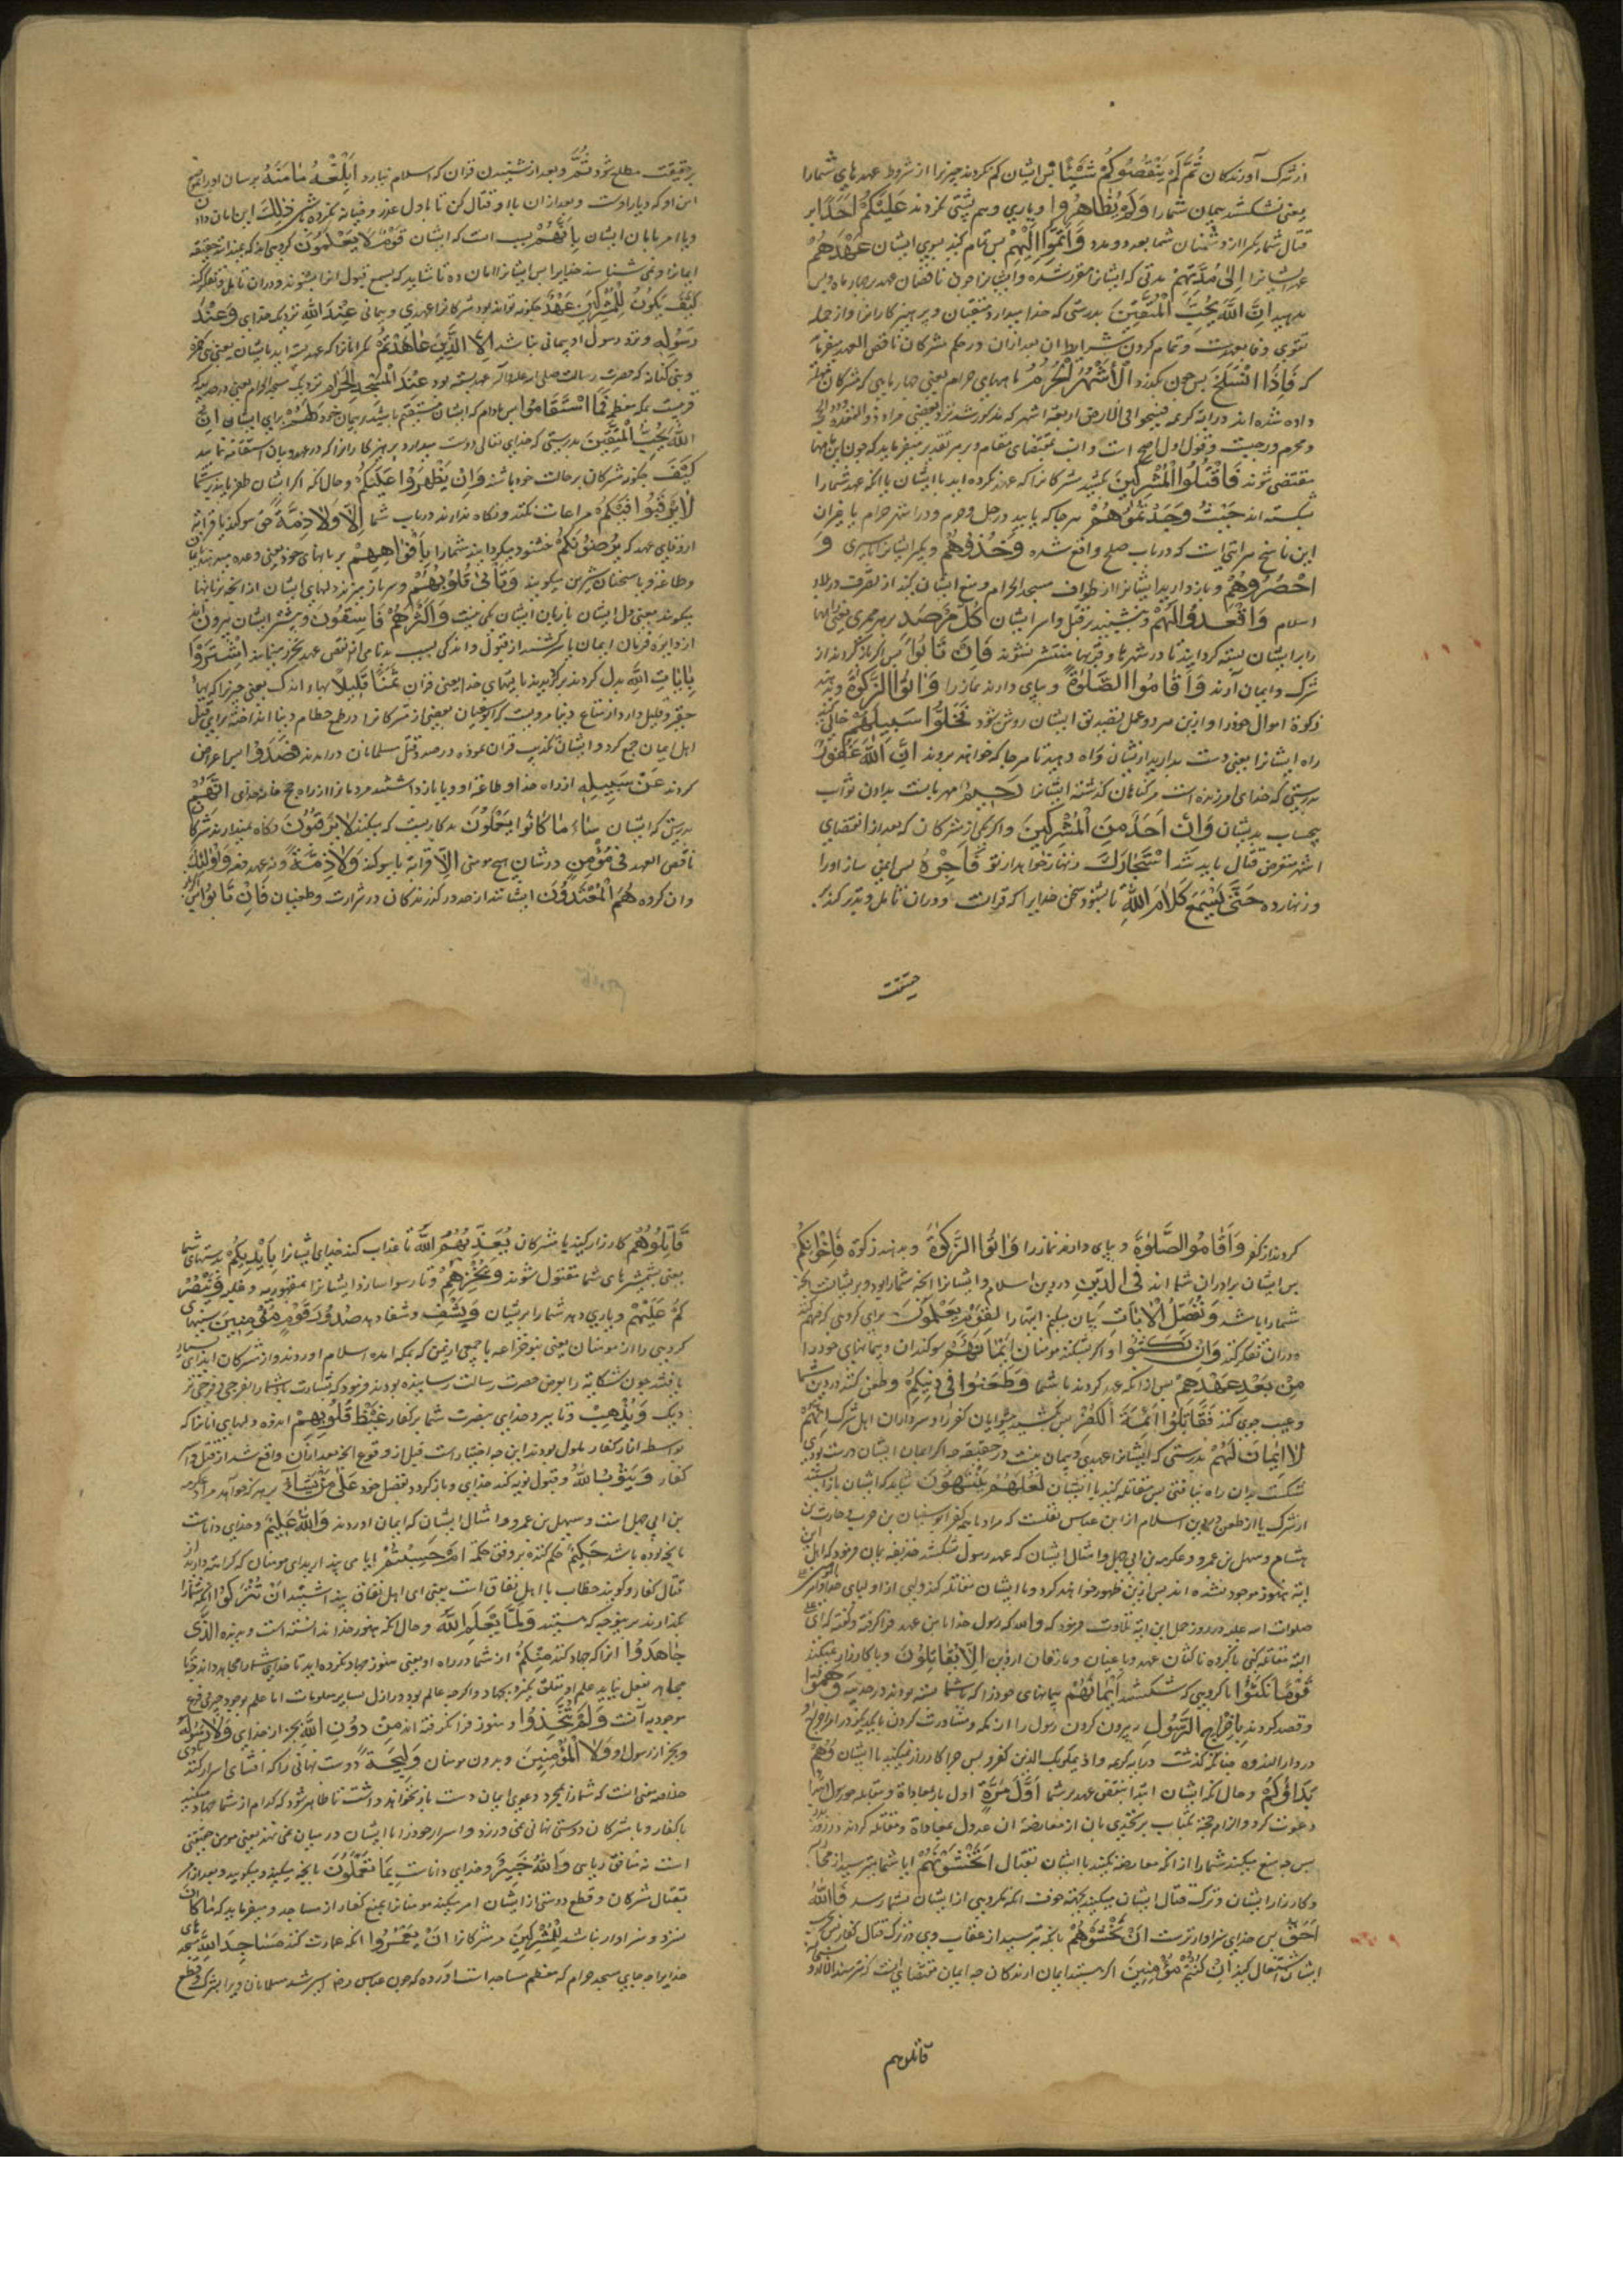 از شرک آورندکان ثُمَّ لَمْ يَنْقُصُوكُمْ شَيْئًا پس ایشان کم نکردند چیزیرا از شروط عهدهای شمارا
یعنی نشکستند پیمان شمارا وَلَمْ يُظَاهِرُوا ویاری وهم پشتی نکردند عَلَيْكُمْ اَحَدًا بر
قتال شما یکیرا از دشمنان شما بعدد ومدد فَاَتِمُّوا اِلَيْهِمْ پس تمام کنید بسوی ایشان عَهْدَهُمْ
عهد ایشانرا اِلٰى مُدَّتِهِمْ تا مدتی که ایشانرا مقرر شده وایشانرا چون ناقضان عهد بر چهار ماه
مدهید اِنَّ اللهَ يُحِبُّ الْمُتَّقِينَ بدرستی که خدا میدارد متقیان وپرهیزکارانرا واز جمله
تقوی وفا بعهدست وتمام کردن شرایط ان بعد ازان در حکم مشرکان ناقض العهد میفرماید
که فَاِذَا انْسَلَخَ پس چون بگذرد الْاَشْهُرُ الْحُرُمُ ماههای حرام یعنی چهار ماهی که مشرکان مهلت
داده شده اند در آیه کریمه فسیحوا فی الارض اربعة اشهر که مذکور شد نزد بعضی مراد ذو القعده
ومحرم ورجبست وقول اول اصح است وانسب بمقتضای مقام وبر هر تقدیر میفرماید که چون این ماهها
منقضی شوند فَاقْتُلُوا الْمُشْرِكِينَ بکشید مشرکانرا که عهد نکرده اید با ایشان یا انکه عهد شمارا
شکسته اند حَيْثُ وَجَدْتُمُوهُمْ هر جا که یابید در حل وحرم ودر اشهر حرام یا غیر ان
این ناسخ هر ایتی است که در باب صلح واقع شده وَخُذُوهُمْ وبکیرید ایشانرا باسیری وَ
احْصُرُوهُمْ وبازدارید ایشانرا از طواف مسجد الحرام ومنع ایشان کنید از تصرف در بلاد
اسلام وَاقْعُدُوا لَهُمْ وبنشینید بر قتل واسر ایشان كُلَّ مَرْصَدٍ بر هر ممری یعنی راهها
را بر ایشان بسته کردانید تا در شهرها وقریها منتشر نشوند فَاِنْ تَابُوا پس اکر بازکردند از
شرک وایمان آرند وَاَقَامُوا الصَّلٰوةَ وبپای دارند نمازرا وَاٰتَوُا الزَّكٰوةَ وبدهند
زکوة اموال خودرا وازین هر دو عمل تصدیق ایشان روشن شود فَخَلُّوا سَبِيلَهُمْ خالی کنید
راه ایشانرا یعنی دست بدارید از ایشان وراه دهید تا هر جا که خواهند بروند اِنَّ اللهَ غَفُورٌ
بدرستی که خدای آمرزنده است مر کناهان کذشته ایشانرا رَحِيمٌ مهربانست بدادن ثواب
بیحساب بدیشان وَاِنْ اَحَدٌ مِنَ الْمُشْرِكِينَ واکر یکی از مشرکان که بعد از انقضای
اشهر متعرض قتال باید شد اسْتَجَارَكَ زنهار خواهد از تو فَاَجِرْهُ پس ایمن ساز اورا
وزنهار ده حَتّٰى يَسْمَعَ كَلَامَ اللهِ تا بشنود سخن خدایرا که قرانست ودران تامل وتدبر کند
حقیقت
بر حقیقت مطلع شود ثُمَّ وبعد از شنیدن قران که اسلام نیارد اَبْلِغْهُ مَاْمَنَهُ برسان اورا
امن او که دیار اوست وبعد ازان با او قتال کن تا باول غدر وخیانت نکرده ذٰلِكَ این امان دادن
ویا امر بامان ایشان بِاَنَّهُمْ بسبب است که ایشان قَوْمٌ لَا يَعْلَمُونَ کروهی اند که نمیدانند حقیقت
ایمانرا ونمی شناسند خدایرا پس ایشانرا امان ده تا شاید که بسمع قبول انرا بشنوند ودران تامل وتفکر کنند
كَيْفَ يَكُونُ لِلْمُشْرِكِينَ عَهْدٌ چکونه تواند بود مشرکانرا عهدی وپیمانی عِنْدَ اللهِ نزدیک خدای وَعِنْدَ
رَسُولِهِ ونزد رسول او پیمانی نباشد اِلَّا الَّذِينَ عَاهَدْتُمْ مکر انانرا که عهد بسته اید با ایشان یعنی بنی ضمره
وبنی کنانه که حضرت رسالت صلی الله علیه وآله عهد بسته بود عِنْدَ الْمَسْجِدِ الْحَرَامِ نزدیک مسجد الحرام یعنی در حدیبیه که
قریبست بمکه معظم فَمَا اسْتَقَامُوا پس مادام که ایشان مستقیم باشند بر پیمان خود لَهُمْ برای ایشان اِنَّ
اللهَ يُحِبُّ الْمُتَّقِينَ بدرستی که خدای تعالی دوست میدارد پرهیزکارانرا که در عهد وپیمان استقامت نمایند
كَيْفَ چکونه مشرکان بر حالت خود باشند وَاِنْ يَظْهَرُوا عَلَيْكُمْ وحال انکه اکر ایشان ظفر یابند بر شما
لَا يَرْقُبُوا فِيكُمْ مراعات نکنند ونکاه ندارند در باب شما اِلًّا وَلَا ذِمَّةً حق سوکند یا قرابت
ازوفای عهد که يُرْضُونَكُمْ خشنود میکردانند شمارا بِاَفْوَاهِهِمْ بزبانهای خود یعنی وعده میدهند بایمان
وطاعت وبا سخنان شیرین میکویند وَتَاْبٰى قُلُوبُهُمْ وسر باز میزند دلهای ایشان از انچه بزبانها
میکویند یعنی دل ایشان با زبان ایشان یکی نیست وَاَكْثَرُهُمْ فَاسِقُونَ وبیشتر ایشان بیرون
از دایره فرمان ایمان یا سرکشند از قبول واندکی بسبب بدنامی از نقض عهد تحرز مینمایند اشْتَرَوْا
بِاٰيَاتِ اللهِ بدل کردند بر کزیدند بایتهای خدا یعنی قران ثَمَنًا قَلِيلًا بهاء اندک یعنی چیزیرا که بهاء
حقیر وقلیل دارد از متاع دنیا مرویست که ابو سفیان بعضی از مشرکانرا در طمع حطام دنیا انداخته برای قتل
اهل ایمان جمع کرد وایشان تکذیب قران نموده در صدد قتل مسلمانان درامدند فَصَدُّوا پس اعراض
کردند عَنْ سَبِيلِهِ از راه خدا وطاعت او ویا بازداشتند مردمانرا از راه حج خانه خدای اِنَّهُمْ
بدرستی که ایشان سَاءَ مَا كَانُوا يَعْمَلُونَ بد کاریست که میکنند لَا يَرْقُبُونَ نکاه نمیدارند مشرکان
ناقض العهد فِي مُؤْمِنٍ در شان هیچ مومنی اِلًّا قرابت یا سوکند وَلَا ذِمَّةً ونه عهد وَاُولٰئِكَ
وان کروه هُمُ الْمُعْتَدُونَ ایشانند از حد درکذرندکان در شرارت وطغیان فَاِنْ تَابُوا پس
کردند از کفر وَاَقَامُوا الصَّلٰوةَ وبپای دارند نمازرا وَاٰتَوُا الزَّكٰوةَ وبدهند زکوة فَاِخْوَانُكُمْ
پس ایشان برادران شما اند فِي الدِّينِ در دین اسلام وایشانرا انچه شمارا بود وبر ایشانست انچه
شمارا باشد وَنُفَصِّلُ الْاٰيَاتِ بیان میکنیم ایتهارا لِقَوْمٍ يَعْلَمُونَ برای کروهی که فهم کنند
ودران تفکر کنند وَاِنْ نَكَثُوا واکر بشکنند مومنان اَيْمَانَهُمْ سوکندان وپیمانهای خودرا
مِنْ بَعْدِ عَهْدِهِمْ پس از انکه عهد کردند با شما وَطَعَنُوا فِي دِينِكُمْ وطعن کنند در دین شما
وعیب جوی کنند فَقَاتِلُوا اَئِمَّةَ الْكُفْرِ پس بکشید پیشوایان کفررا وسرداران اهل شرک اِنَّهُمْ
لَا اَيْمَانَ لَهُمْ بدرستی که ایشانرا عهدی وپیمان نیست در حقیقت چه اکر ایمان ایشان درست بودی
شکست بدان راه نیافتی پس مقاتله کنید با ایشان لَعَلَّهُمْ يَنْتَهُونَ شاید که ایشان باز ایستند
از شرک یا از طعن در دین اسلام از ابن عباس نقلست که مراد بائمه کفر ابو سفیان بن حرب وحارث بن
هشام وسهیل بن عمرو وعکرمه بن ابی جهل وامثال ایشان که عهد رسول شکستند حذیفه یمان فرمود که اهل این
ایه هنوز موجود نشده اند پس ازین ظهور خواهند کرد وبا ایشان مقاتله کند ولی از اولیای خدا
صلوات الله علیه در روز جمل این ایة تلاوت فرمود که والله که رسول خدا با من عهد فراکرفته وکفته که ای
البته مقاتله کنی با کروه ناکثان عهد وباغیان ومارقان از دین اَلَا تُقَاتِلُونَ ویا کارزار نمیکنند
قَوْمًا نَكَثُوا با کروهی که شکستند اَيْمَانَهُمْ پیمانهای خودرا که با شما بسته بودند در حدیبیه وَهَمُّوا
وقصد کردند بِاِخْرَاجِ الرَّسُولِ به بیرون کردن رسول را از مکه ومشاورت کردن با یکدیکر در امر
در دار الندوه چنانکه کذشت در ایه کریمه واذ یمکر بک الذین کفروا پس چرا کارزار نمیکنید با ایشان وَهُمْ
بَدَؤُكُمْ وحال انکه ایشان ابتدا بنقض عهد بر شما اَوَّلَ مَرَّةٍ اول بار معاداة ومقابله
دعوت کرد والزام حجت بکتاب بر تحدی بان از معارضه ان عدول بمعاداة ومقاتله کردند
پس چه منع میکند شمارا از انکه معارضه کنید با ایشان بقتال اَتَخْشَوْنَهُمْ ایا شما میترسید از
وکارزار ایشان وترک قتال ایشان میکنید بجهت خوف انکه مکروهی از ایشان بشما رسد فَاللهُ
اَحَقُّ پس خدای سزاوارترست اَنْ تَخْشَوْهُ بانکه بترسید از عقاب وی در ترک قتال کفار پس
ایشان اشتغال کنید اِنْ كُنْتُمْ مُؤْمِنِينَ اکر هستید ایمان آرندکان چه ایمان مقتضای انست که نترسند الا از
قاتلوهم
قَاتِلُوهُمْ کارزار کنید با مشرکان يُعَذِّبْهُمُ اللهُ تا عذاب کند خدای ایشانرا بِاَيْدِيكُمْ بدستهای شما
یعنی بشمشیرهای شما مقتول شوند وَيُخْزِهِمْ وتا رسوا سازد ایشانرا بمقهوریت وغلبه وَيَنْصُرْ
كُمْ عَلَيْهِمْ ویاری دهد شمارا بر ایشان وَيَشْفِ وشفا دهد صُدُورَ قَوْمٍ مُؤْمِنِينَ سینهای
کروهی را از مومنان یعنی بنو خزاعه یا جمعی از یمن که بمکه امده اسلام اوردند واز مشرکان ایذای بسیار
یافتند چون شکایت را بعرض حضرت رسالت رسانیده بودند فرمود که بشارت باد شمارا الفرج
دیک وَيُذْهِبْ وتا ببرد خدای بنصرت شما بر کفار غَيْظَ قُلُوبِهِمْ اندوه دلهای انانرا که
بواسطه ایذاء کفار ملول بودند این چه اخبارات قبل از وقوع انچه بعد ازان واقع شد از قتل واسر
کفار وَيَتُوبُ اللهُ وقبول توبه کند خدای وبازکردد بفضل خود عَلٰى مَنْ يَشَاءُ بر هر که خواهد مراد عکرمه
بن ابی جهل است وسهیل بن عمرو وامثال ایشان که ایمان اوردند وَاللهُ عَلِيمٌ وخدای داناست
بانچه بوده باشد حَكِيمٌ حکم کننده بر وفق حکمت اَمْ حَسِبْتُمْ ایا می پندارید ای مومنان که کراهت دارید از
قتال کفار وکویند خطاب با اهل نفاق است یعنی ای اهل نفاق پنداشتید اَنْ تُتْرَكُوا انکه شمارا
بکذارند بر همین وجه که هستید وَلَمَّا يَعْلَمِ اللهُ وحال انکه هنوز خدا ندانسته است وندیده الَّذِينَ
جَاهَدُوا انرا که جهاد کنند مِنْكُمْ از شما در راه او یعنی هنوز جهاد نکرده اید تا خدای شمارا مجاهد داند
مجاهد بفعل نیاید علم او متعلق نمیشود بجهاد واکرچه عالم بود در ازل بسایر معلومات اما علم بوجود چیزی فرع
موجودیه آنست وَلَمْ يَتَّخِذُوا وهنوز فرا نکرفته اند مِنْ دُونِ اللهِ بجز از خدای وَلَا رَسُولِهِ
وبجز از رسول او وَلَا الْمُؤْمِنِينَ وبدون مومنان وَلِيجَةً دوست نهانی را که افشای اسرار کنند
خلاصه معنی انست که شمارا بمجرد دعوی ایمان دست باز نخواهد داشت تا ظاهر شود که کدام از شما جهاد میکنید
با کفار وبا مشرکان دوستی نهانی نمی ورزد واسرار خودرا با ایشان در میان نمی نهد یعنی مومن حقیقی
است نه منافق ریایی وَاللهُ خَبِيرٌ وخدای داناست بِمَا تَعْمَلُونَ بانچه میکنید ومیکویید وبعد از امر
بقتال مشرکان وقطع دوستی از ایشان امر میکند مومنانرا بمنع کفار از مساجد ومیفرماید که مَا كَانَ
نسزد وسزاوار نباشد لِلْمُشْرِكِينَ مر مشرکانرا اَنْ يَعْمُرُوا انکه عمارت کنند مَسَاجِدَ اللهِ مسجدهای
خدایرا چه جای مسجد حرام که معظم مساجد است اورده که چون عباس رض اسیر شد مسلمانان ویرا بشرک وقطع